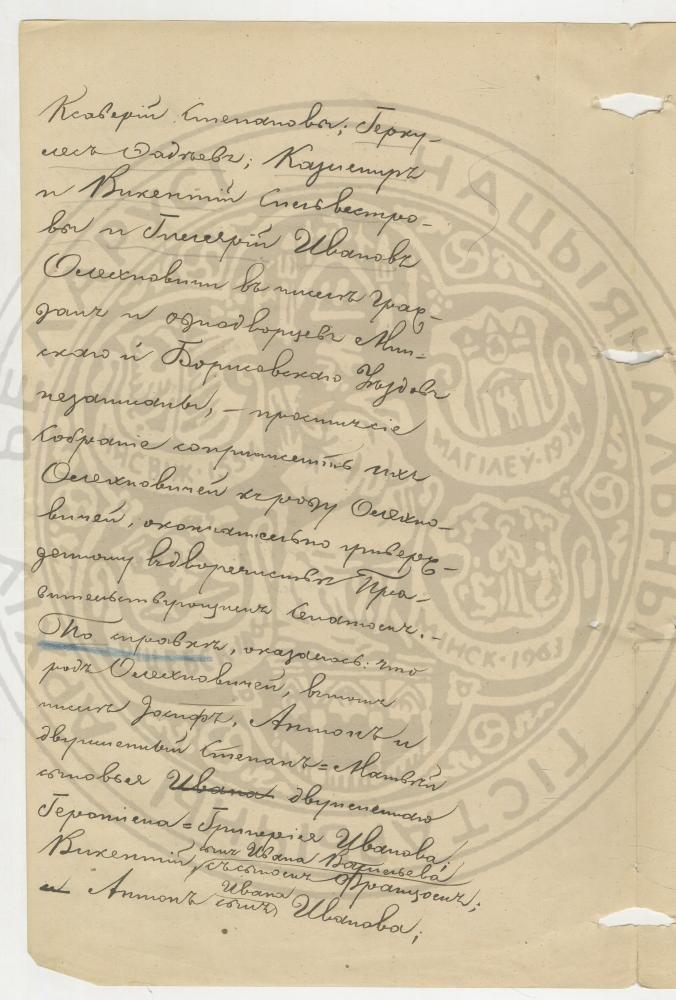 Ксаверій Степановы; Герку-
лесъ Фадѣевъ; Казимиръ
и Викентій Сильвестро-
вы и Гилярій Ивановъ
Олехновичи въ числѣ граж-
данъ и однодворцевъ Мин-
скаго и Борисовскаго Уѣздовъ
незаписаны, – просители
Собраніе сопричислить ихъ
Олехновичей къ роду Олехно-
вичей, окончательно утверж-
денному въ дворянствѣ Пра-
вительствующимъ Сенатомъ. –
По справкѣ, оказалось: что
родъ Олехновичей, въ томъ
числѣ Іосифъ, Антонъ и
двуименный Степанъ=Матвѣй
сыновья Ивана двуименнаго
Геронима=Григорія Иванова;
Викентій сынъ Ивана Васильева
съ сыномъ Францомъ;
и Антонъ Ивана
сынъ Иванова;
БЕЛАРУСІ
НАЦЫЯНАЛЬНЫ
ГІСТ
МАГІЛЕЎ
МІНСК 1963